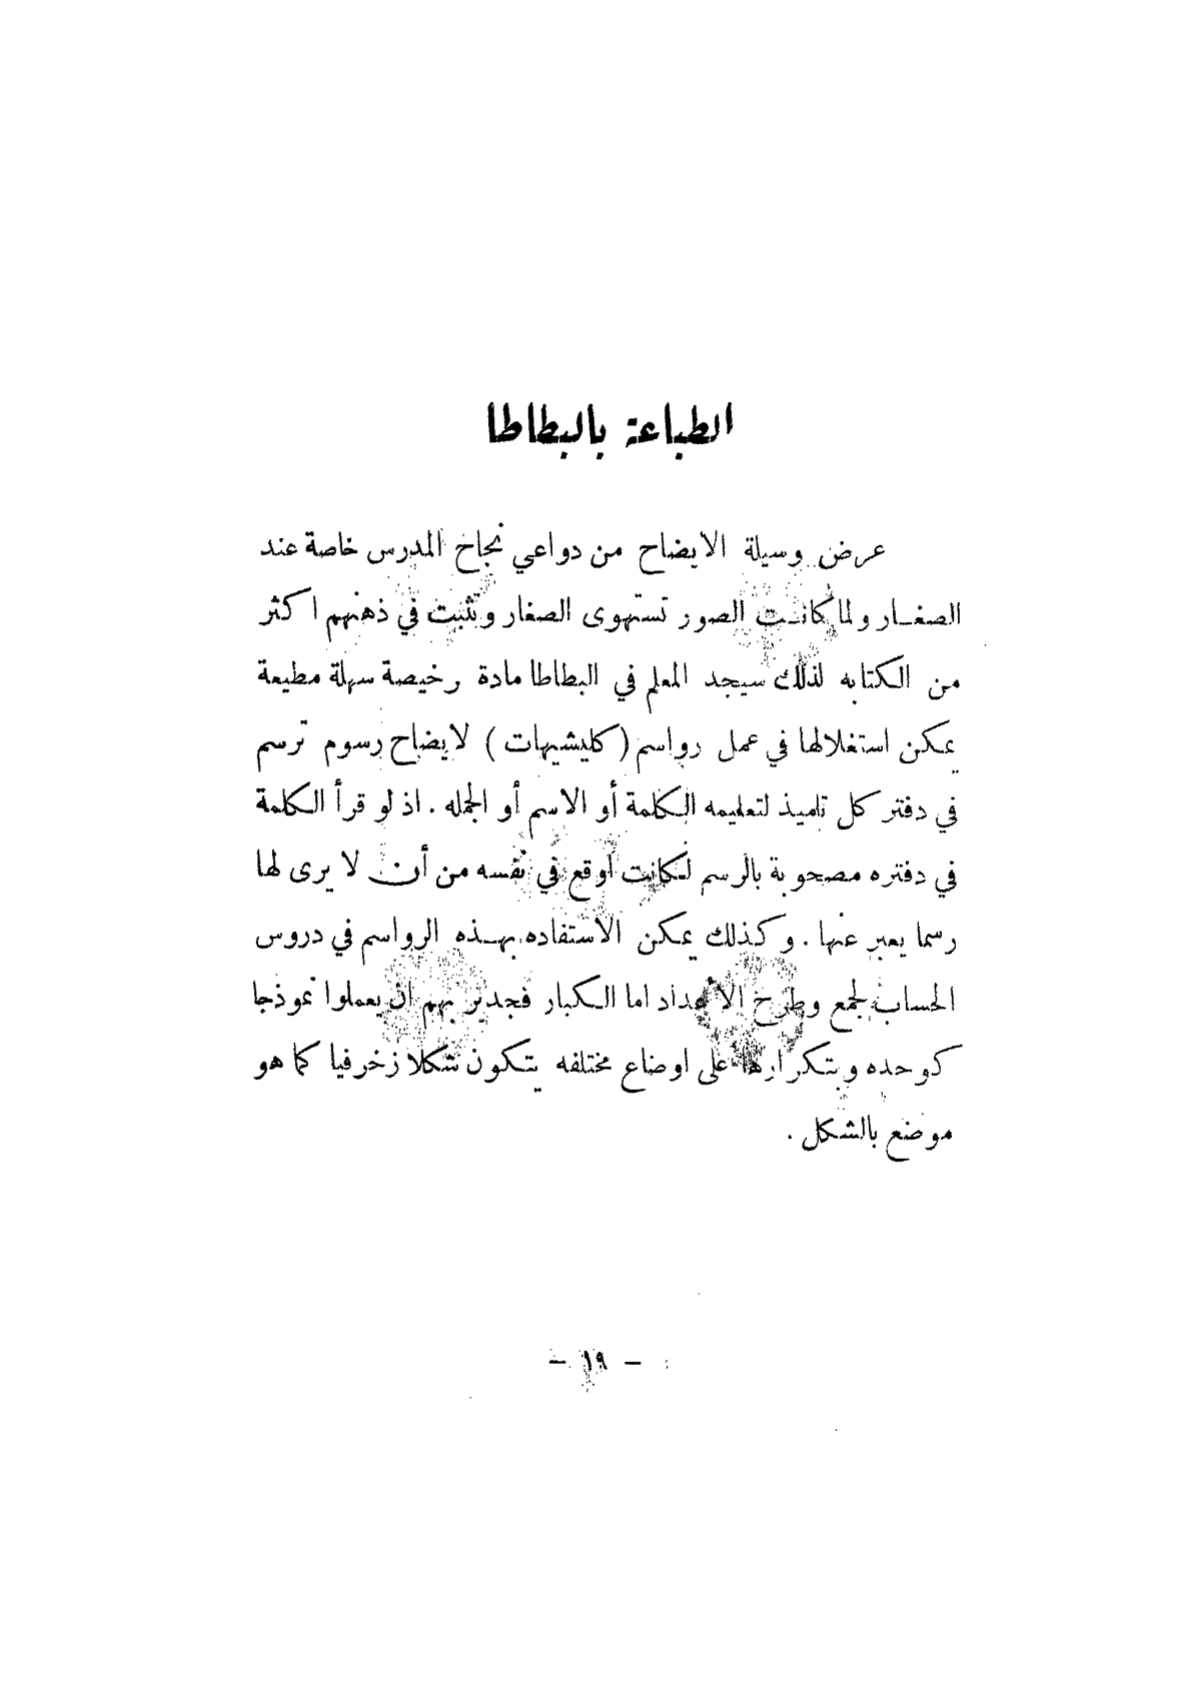 الطباعة بالبطاطا
عرض وسيلة الايضاح من دواعي نجاح المدرس خاصة عند
الصغار ولما كانت الصور تستهوى الصغار وتثبت في ذهنهم اكثر
من الكتابه لذلك سيجد المعلم في البطاطا مادة رخيصة سهلة مطيعة
يمكن استغلالها في عمل رواسم (كليشيهات) لايضاح رسوم ترسم
في دفتر كل تلميذ لتعليمه الكلمة أو الاسم أو الجمله . اذ لو قرأ الكلمة
في دفتره مصحوبة بالرسم لكانت أوقع في نفسه من أن لا يرى لها
رسما يعبر عنها . وكذلك يمكن الاستفاده بهذه الرواسم في دروس
الحساب لجمع وطرح الأعداد اما الكبار فجدير بهم ان يعملوا نموذجا
كوحده وبتكرارها على اوضاع مختلفه يتكون شكلا زخرفيا كما هو
موضع بالشكل .
– ١٩ –